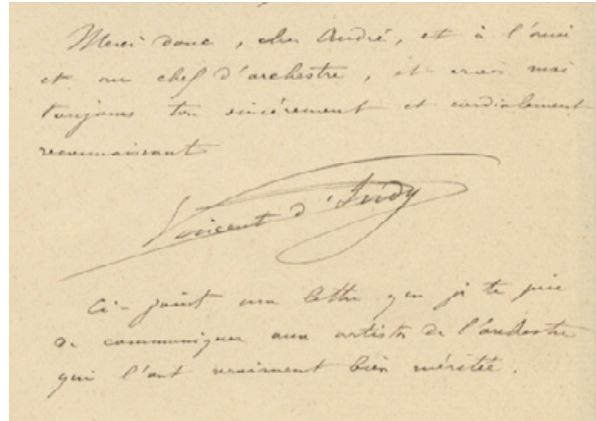 Merci donc, cher André, et à l'ami
et au chef d'orchestre, et crois moi
toujours ton sincèrement et cordialement
reconnaissant
Vincent d'Indy
Ci-joint une lettre que je te prie
de communiquer aux artistes de l'orchestre
qui l'ont vraiment bien méritée.